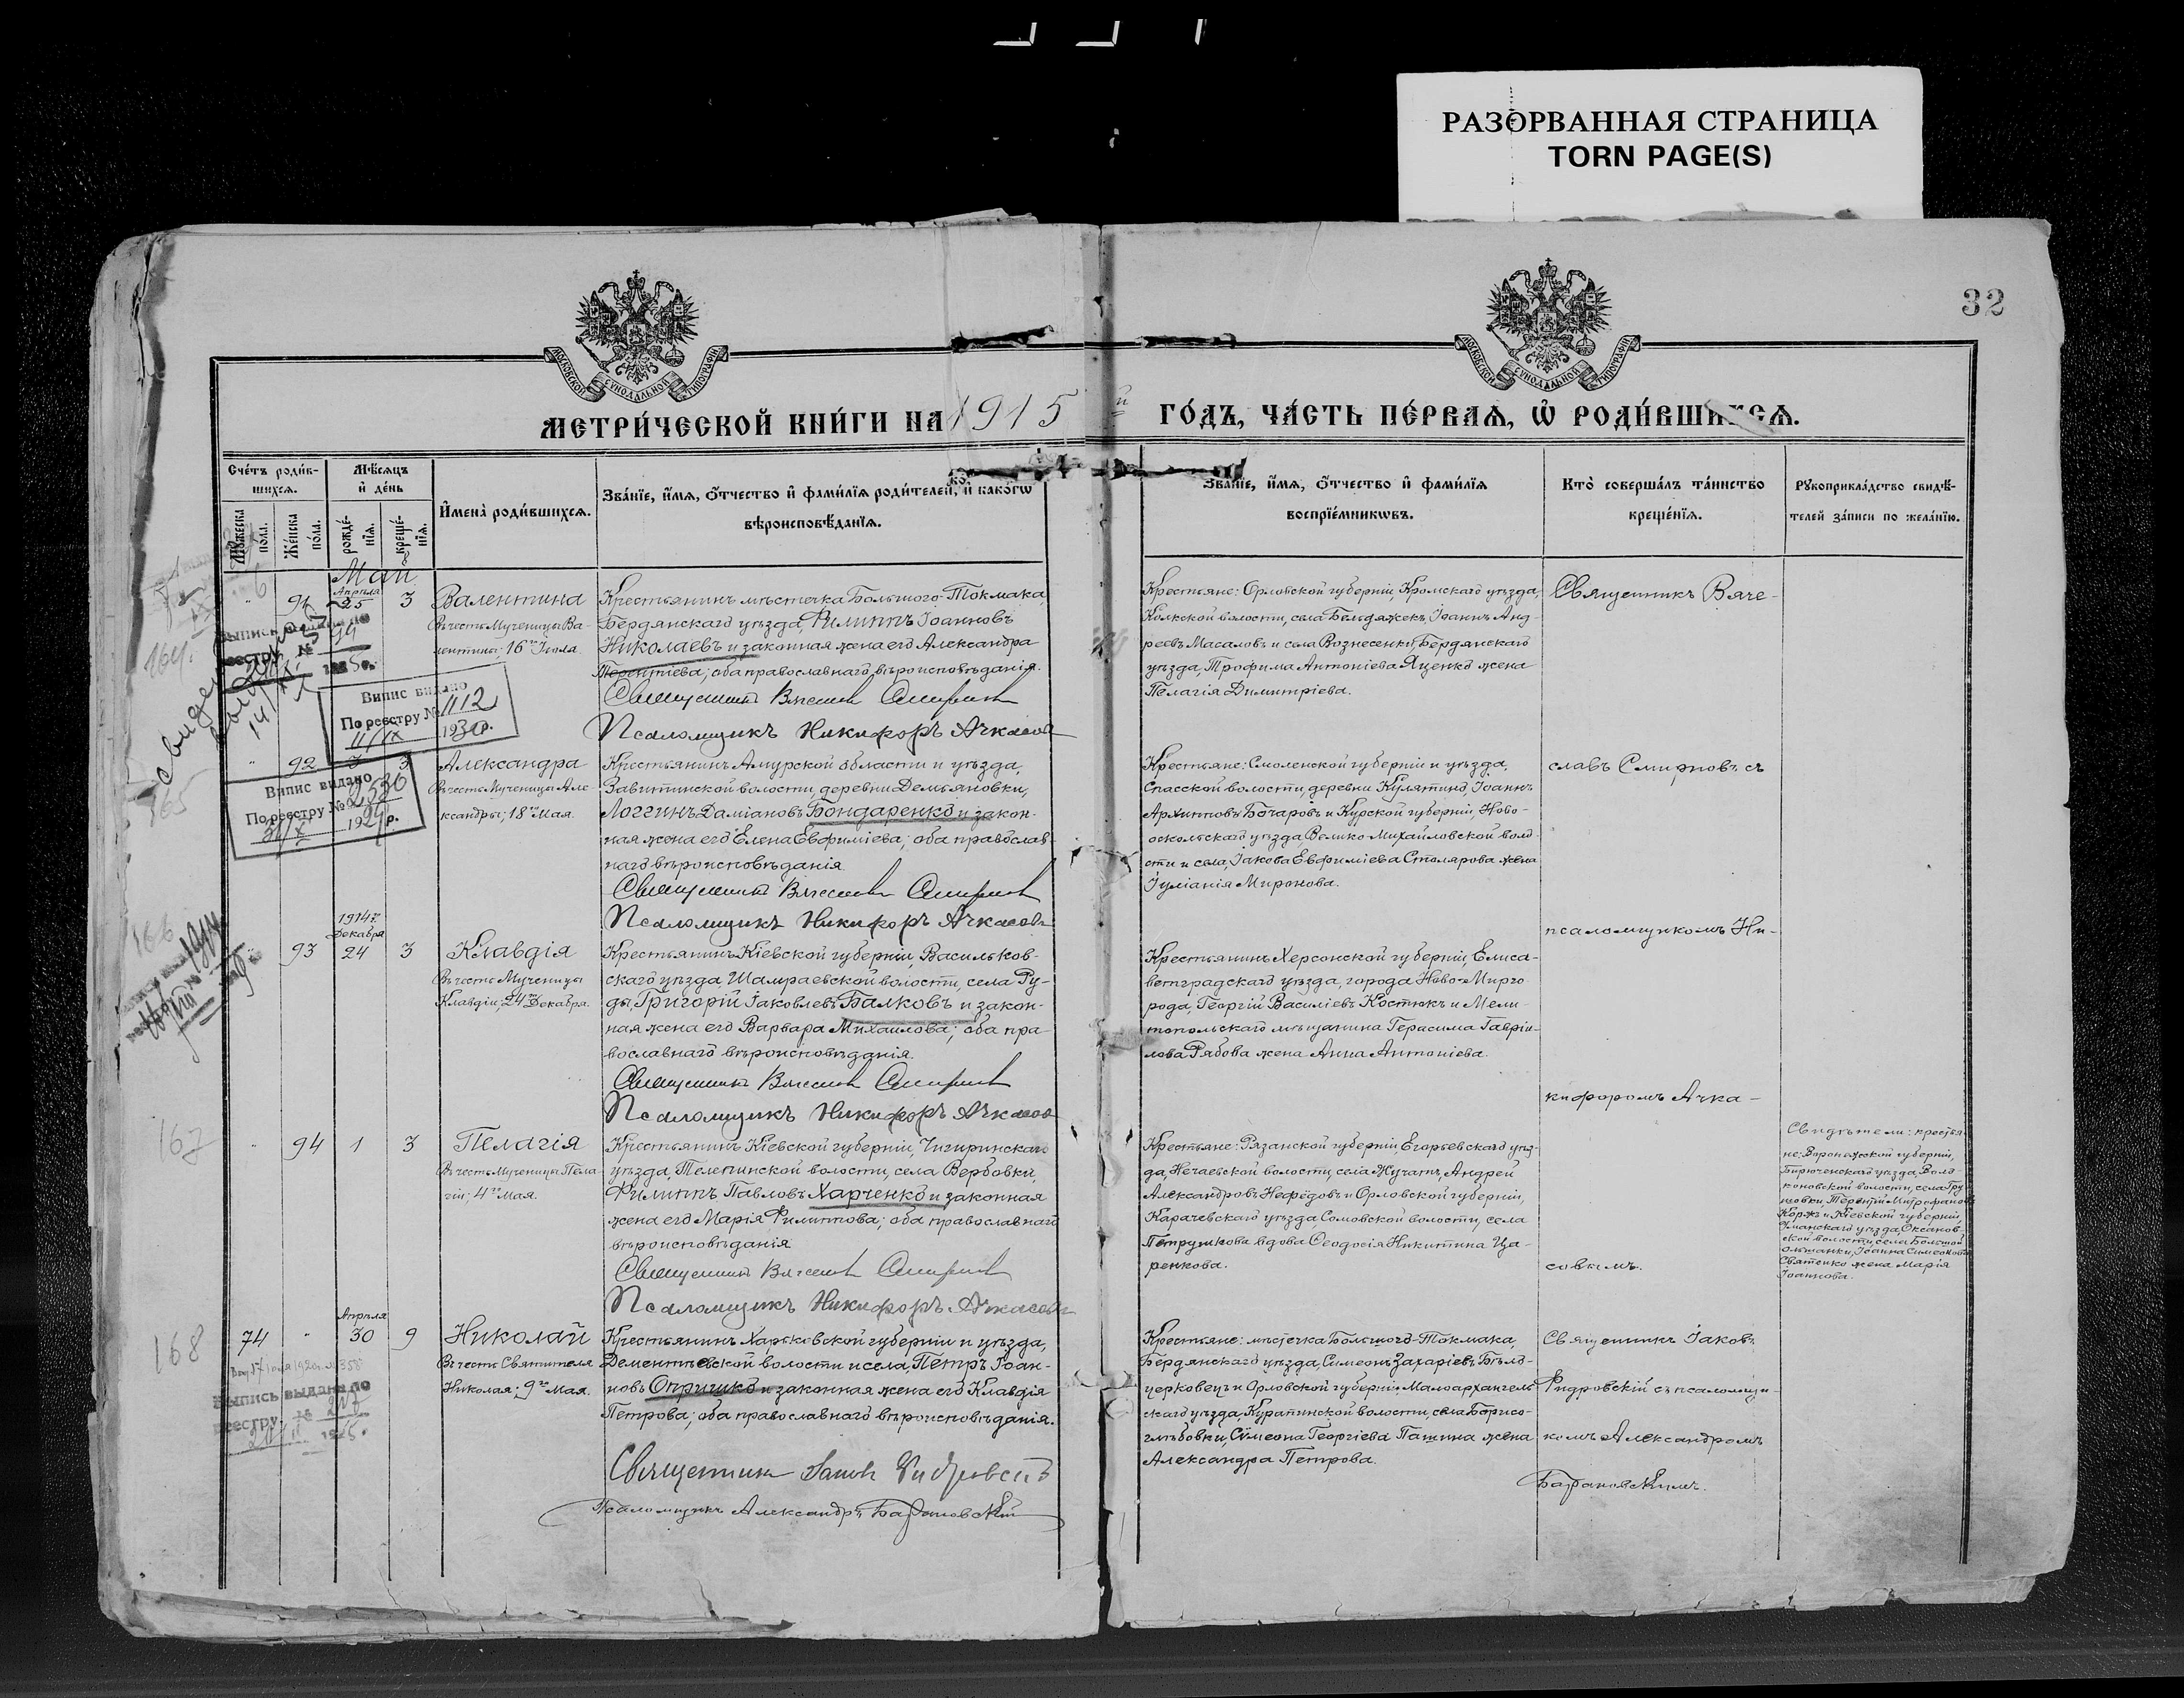 РАЗОРВАННАЯ СТРАНИЦА
TORN PAGE(S)
32
МОСКОВСКОЙ СѴНОДАЛЬНОЙ ТИПОГРАФІИ
МОСКОВСКОЙ СѴНОДАЛЬНОЙ ТИПОГРАФІИ
МЕТРИ́ЧЕСКОЙ КНИ́ГИ НА 1915 й ГО́ДЪ, ЧА́СТЬ ПЕ́РВАѦ, Ѡ҆ РОДИ́ВШИХСѦ.
Сче́тъ роди́в-
шихсѧ.
Мѣ́сѧцъ
и҆ де́нь
Мꙋ́жеска
по́ла.
Же́нска
по́ла.
рожде́-
нїѧ.
креще́-
нїѧ.
И҆мена̀ роди́вшихсѧ.
Зва́нїе, и҆́мѧ, ѻ҆́тчество и҆ фами́лїѧ роди́телей, и҆ како́гѡ
вѣроисповѣ́данїѧ.
Зва́нїе, и҆́мѧ, ѻ҆́тчество и҆ фами́лїѧ
воспрїе́мникѡвъ.
Кто̀ соверша́лъ та́инство
креще́нїѧ.
Рꙋкоприкла́дство свидѣ́-
телей за́писи по жела́нїю.
Май
Апрѣля
" 91 25 3
Валентина
Въ честь Мученицы Ва-
лентины; 16го Іюля.
Крестьянинъ мѣстечка Большого-Токмака,
Бердянскаго уѣзда, Филиппъ Іоанновъ
Николаевъ и законная жена его Александра
Терентіева; оба православнаго вѣроисповѣданія.
Священникъ Вячеславъ Смирновъ
Псаломщикъ Никифоръ Ачкасовъ
Крестьяне: Орловской губерніи, Кромскаго уѣзда,
волости, села Іоаннъ Анд-
реевъ Масаловъ и села Вознесенки, Бердянскаго
уѣзда, Трофима Антоніева Яценко жена
Пелагія Димитріева.
Священникъ Вяче-
164.
Випис видано
По реєстру № 1112
11/IX 1930р.
165
" 92 3 3
Александра
Въ честь Мученицы Але-
ксандры; 18го Мая.
Крестьянинъ Амурской области и уѣзда,
Завитинской волости, деревни Демьяновки,
Логгинъ Даміановъ Бондаренко и закон-
ная жена его Елена Евфиміева; оба православ-
наго вѣроисповѣданія
Священникъ Вячеславъ Смирновъ
Псаломщикъ Никифоръ Ачкасовъ
Крестьяне: Смоленской губерніи и уѣзда,
Спасской волости, деревни Кулятино, Іоаннъ
Архипповъ Бочаровъ и Курской губерніи, Ново-
оскольскаго уѣзда, Велико-Михайловской воло-
сти и села, Іакова Евфиміева Столярова жена
Іуліанія Миронова.
славъ Смирновъ съ
Випис видано
По реєстру №
192 р.
166
1914 г.
Декабря
93 24 3
Клавдія
Въ честь Мученицы
Клавдіи; 24го Декабря.
Крестьянинъ Кіевской губерніи, Васильков-
скаго уѣзда Шамраевской волости, села Ру-
ды, Григорій Іаковлевъ Балковъ и закон-
ная жена его Варвара Михаилова; оба пра-
вославнаго вѣроисповѣданія.
Священникъ Вячеславъ Смирновъ
Псаломщикъ Никифоръ Ачкасовъ
Крестьянинъ Херсонской губерніи, Елиса-
ветградскаго уѣзда, города Ново-Мирго-
рода, Георгій Василіевъ Костюкъ и Мели-
топольскаго мѣщанина Герасима Гавріи-
лова Рябова жена Анна Антоніева.
псаломщикомъ Ни-
кифоромъ Ачка-
167
" 94 1 3
Пелагія
Въ честь Мученицы Пела-
гіи; 4го Мая.
Крестьянинъ Кіевской губерніи, Чигиринскаго
уѣзда, Телепинской волости, села Вербовки,
Филиппъ Павловъ Харченко и законная
жена его Марія Филиппова; оба православнаго
вѣроисповѣданія
Священникъ Вячеславъ Смирновъ
Псаломщикъ Никифоръ Ачкасовъ
Крестьяне: Рязанской губерніи, Егорьевскаго уѣз-
да, Нечаевской волости, села Жучатъ, Андрей
Александровъ Нефедовъ и Орловской губерніи,
Карачевскаго уѣзда, Сомовской волости, села
Петрушкова вдова Ѳеодосія Никитина Ца-
ренкова.
совымъ.
Свидѣтели: крестья-
не: Воронежской губерніи,
Бирюченскаго уѣзда, Воло-
коновской волости, села Гру-
шовки, Терентій Митрофановъ
Коржъ и Кіевской губерніи
Уманскаго уѣзда, Оксанов-
ской волости, села Большой
Ольшанки, Іоанна Симеонова
Святенко жена Марія
Іоаннова.
168
Апрѣля
74 " 30 9
Николай
Въ честь Святителя
Николая; 9го Мая.
Крестьянинъ Харьковской губерніи и уѣзда,
Дементьевской волости и села, Петръ Іоан-
новъ Опришко и законная жена его Клавдія
Петрова; оба православнаго вѣроисповѣданія.
Священникъ Іаковъ Фидровскій
Псаломщикъ Александръ Барановскій
Крестьяне: мѣстечка Большого-Токмака,
Бердянскаго уѣзда, Симеонъ Захаріевъ Бѣло-
церковецъ и Орловской губерніи Малоархангель-
скаго уѣзда, Куракинской волости, села Борисо-
глѣбовки, Симеона Георгіева Пашина жена
Александра Петрова.
Священникъ Іаковъ
Фидровскій съ псаломщи-
комъ Александромъ
Барановскимъ.
Выпись выдана по
реестру №